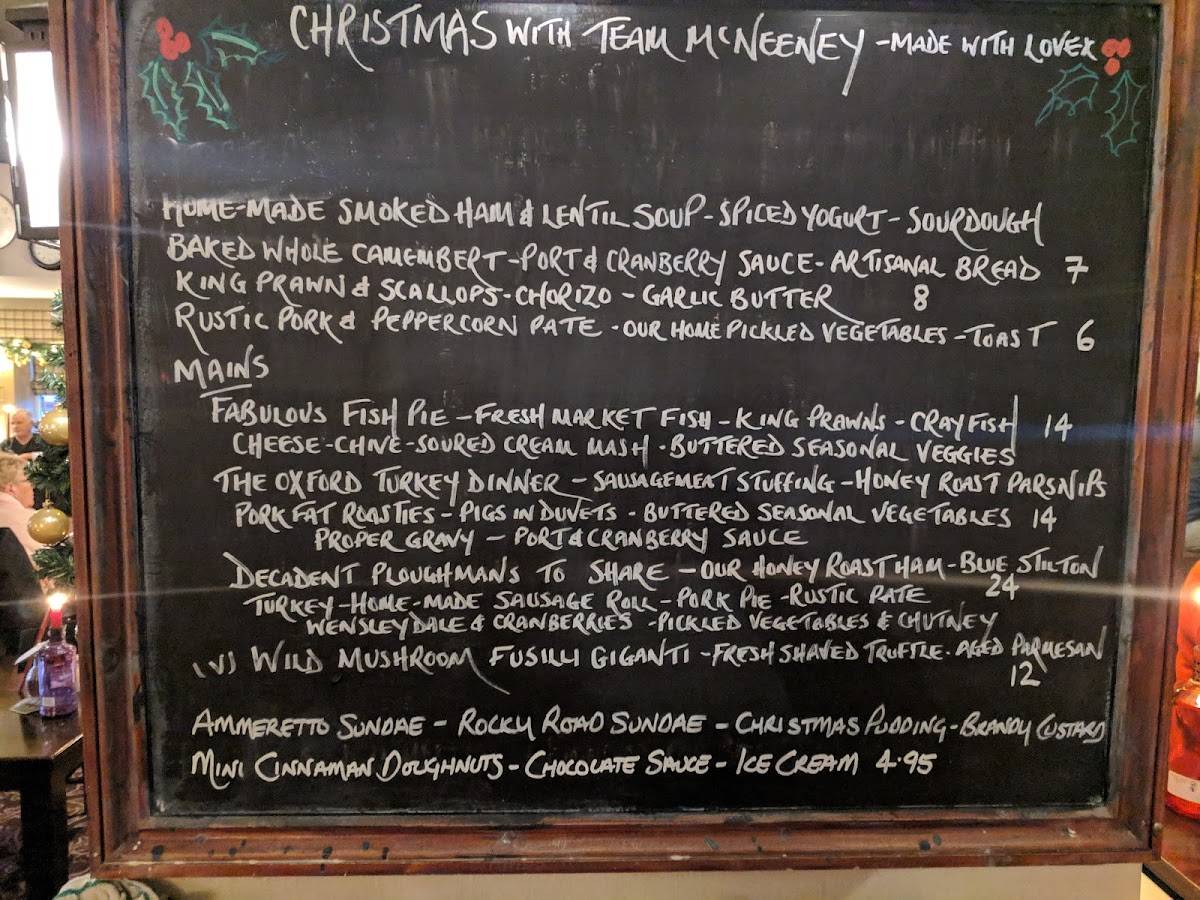 CHRISTMAS WITH TEAM MCNEENEY - MADE WITH LOVEX
HOME-MADE SMOKED HAM & LENTIL SOUP - SPICED YOGURT - SOURDOUGH
BAKED WHOLE CAMEMBERT - PORT & CRANBERRY SAUCE - ARTISANAL BREAD 7
KING PRAWN & SCALLOPS - CHORIZO - GARLIC BUTTER 8
RUSTIC PORK & PEPPERCORN PATE - OUR HOME PICKLED VEGETABLES - TOAST 6
MAINS
FABULOUS FISH PIE - FRESH MARKET FISH - KING PRAWNS - CRAYFISH 14
CHEESE-CHIVE-SOURED CREAM MASH - BUTTERED SEASONAL VEGGIES
THE OXFORD TURKEY DINNER - SAUSAGEMEAT STUFFING - HONEY ROAST PARSNIPS
PORK FAT ROASTIES - PIGS IN DUVETS - BUTTERED SEASONAL VEGETABLES 14
PROPER GRAVY - PORT & CRANBERRY SAUCE
DECADENT PLOUGHMANS TO SHARE - OUR HONEY ROAST HAM - BLUE STILTON
TURKEY - HOME-MADE SAUSAGE ROLL - PORK PIE - RUSTIC PATE 24
WENSLEYDALE & CRANBERRIES - PICKLED VEGETABLES & CHUTNEY
(V) WILD MUSHROOM FUSILLI GIGANTI - FRESH SHAVED TRUFFLE - AGED PARMESAN
12
AMMERETTO SUNDAE - ROCKY ROAD SUNDAE - CHRISTMAS PUDDING - BRANDY CUSTARD
MINI CINNAMAN DOUGHNUTS - CHOCOLATE SAUCE - ICE CREAM 4.95